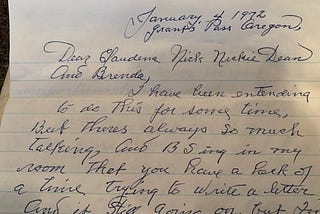 January, 4 1972
Grants Pass Oregon,
Dear Claudena Nick Nickie Dean
And Brenda,
I have been entending
to do this for some time,
But theres always so much
talking And B S ing in my
room That you have a heck of
a time trying to write a letter
And it still going on, But I'm